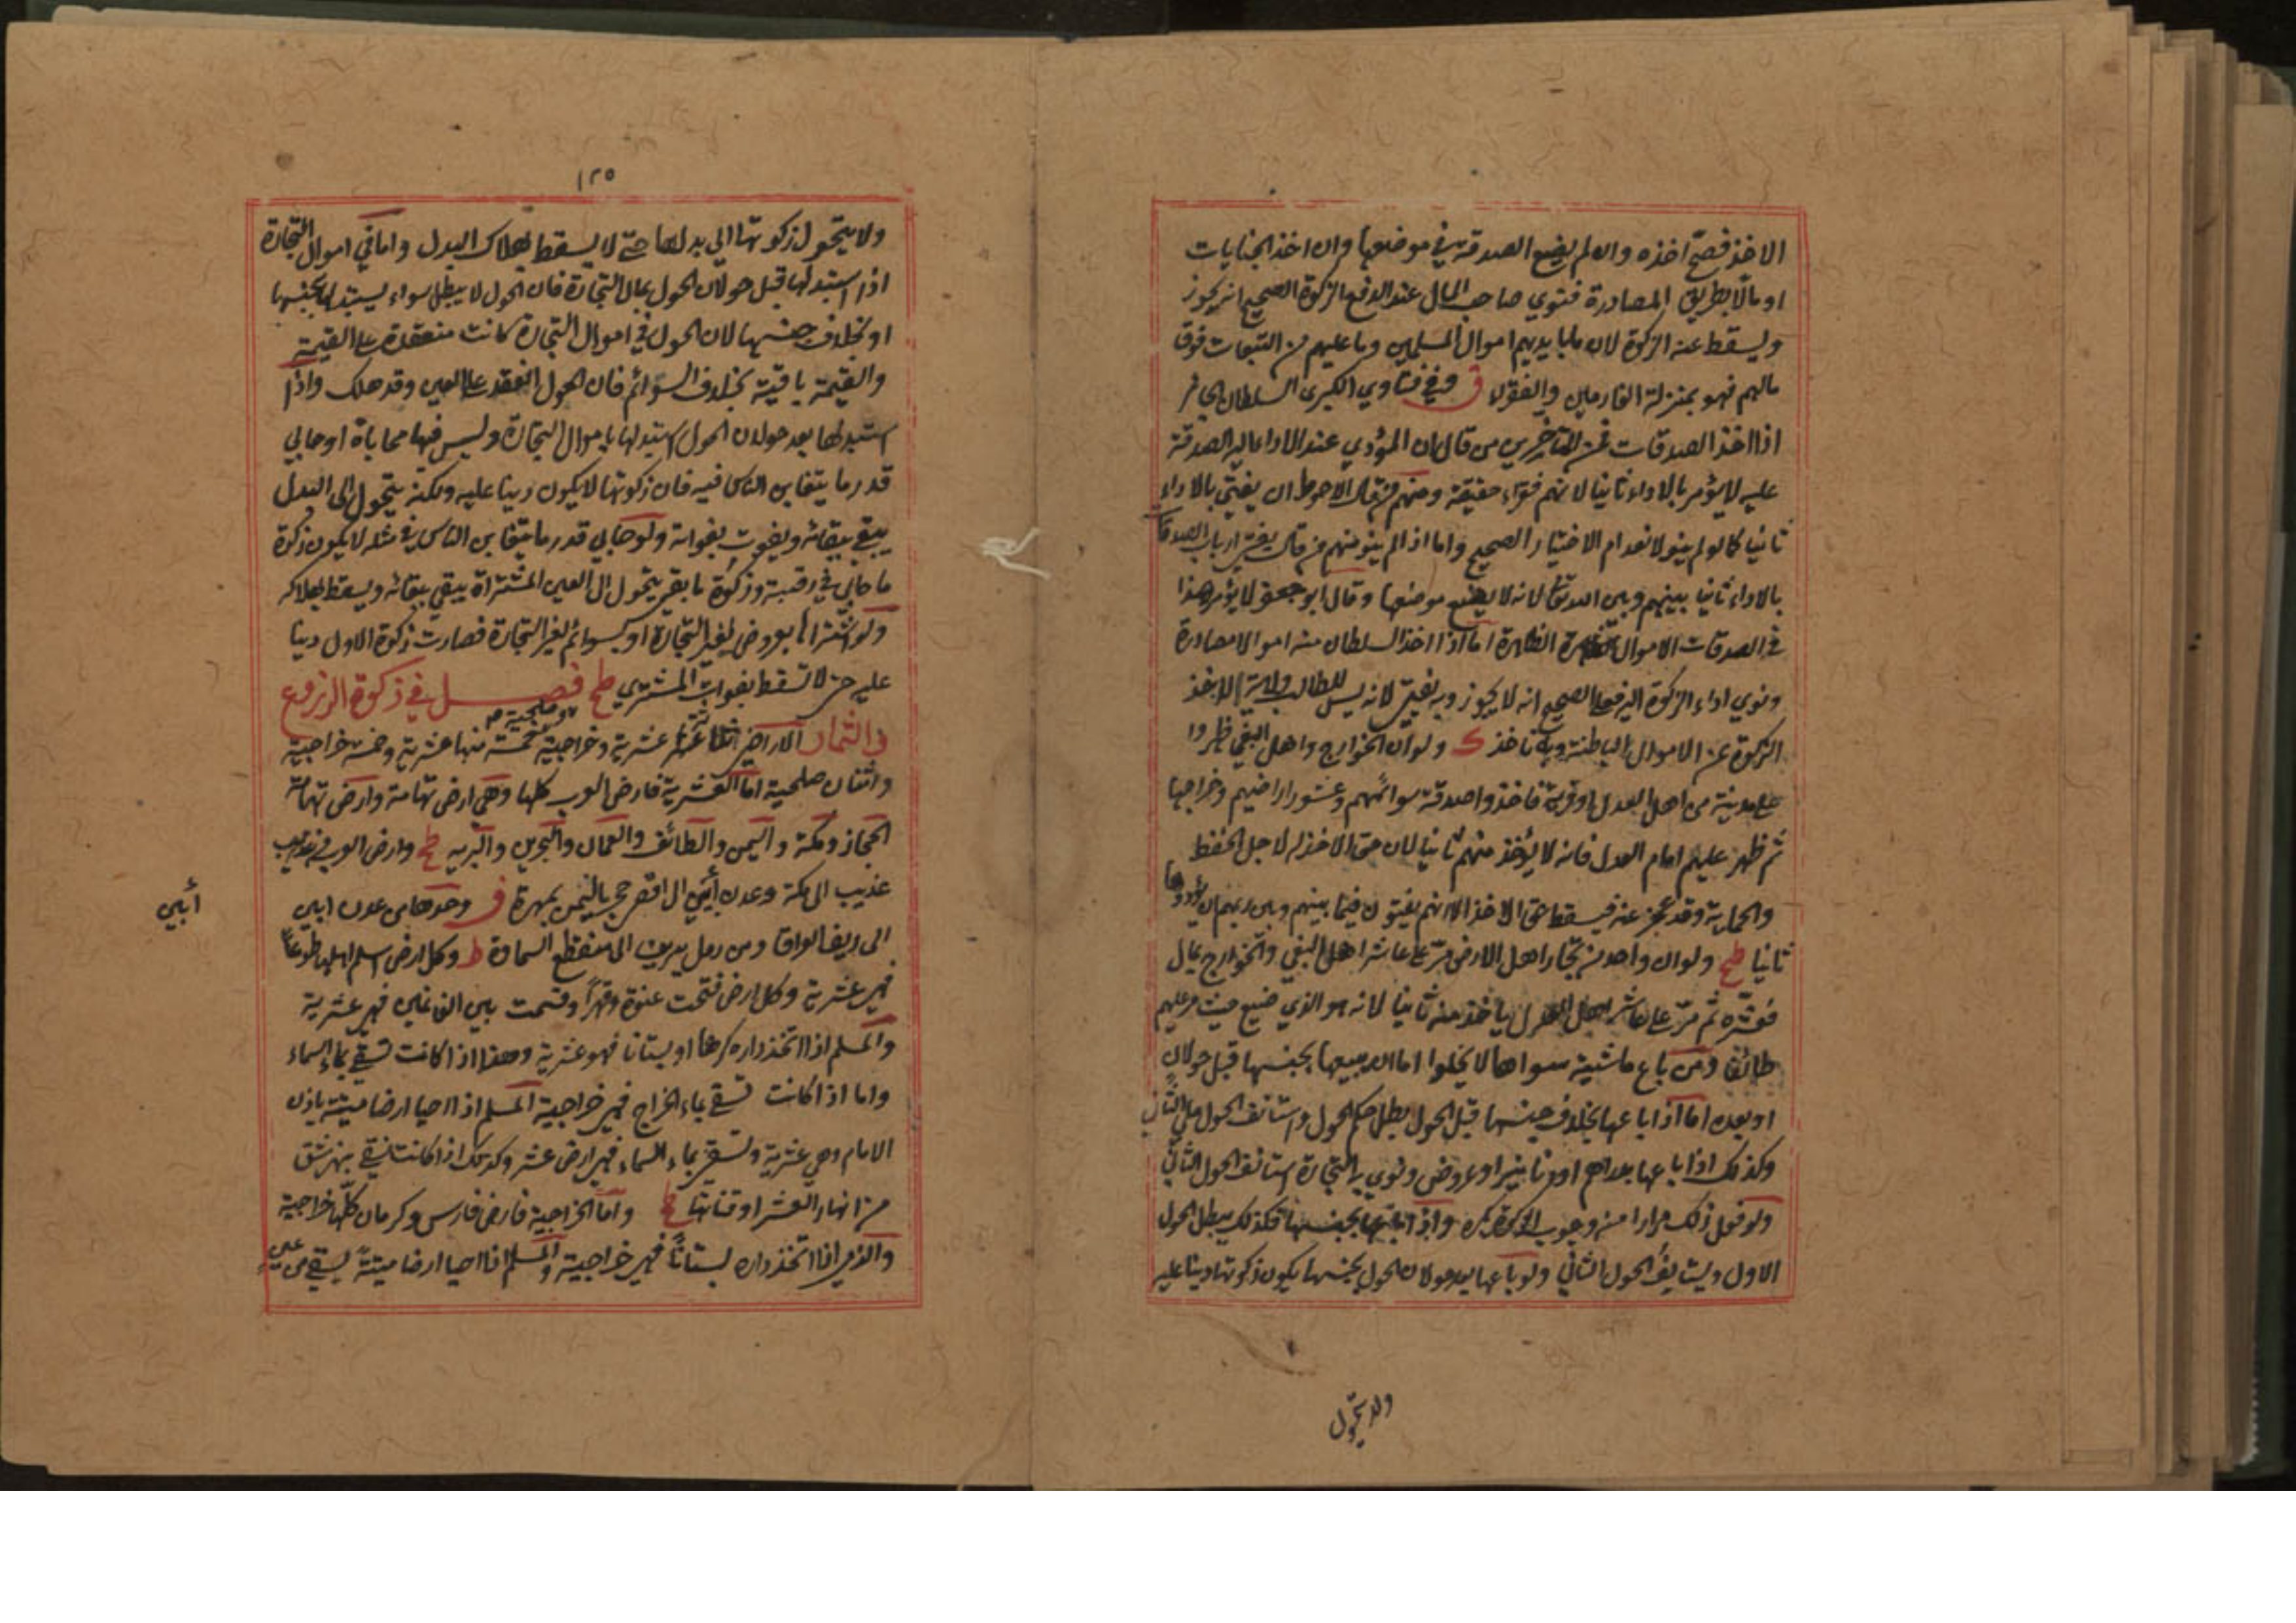 الاخذ فصح اخذه وان لم يضع الصدقة في موضعها وان اخذ الجنايات
او مالا بطريق المصادرة فنوي صاحب المال عند الدفع الزكوة الصحيح انه يجوز
ويسقط عنه الزكوة لان ما بايديهم اموال المسلمين وما عليهم من التبعات فوق
مالهم فهو بمنزلة الغارمين والفقراء ق وفي فتاوي الكبرى السلطان الجائر
اذا اخذ الصدقات فمن المتأخرين من قال ان المؤدي عند الاداء اليه الصدقة
عليه لا يؤمر بالاداء ثانيا لانهم فقراء حقيقة ومنهم من قال الاحوط ان يفتي بالاداء
ثانيا كما لو لم ينو لانعدام الاختيار الصحيح واما اذا لم ينو منهم من قال يفتي ارباب الصدقات
بالاداء ثانيا بينهم وبين الله تعالى لانه لا يضع موضعها وقال ابو جعفر لا يؤمر هذا
في الصدقات الاموال الظاهرة اما اذا اخذ السلطان منه اموالا مصادرة
ونوي اداء الزكوة اليه فعلى الصحيح انه لا يجوز وبه يفتي لانه ليس للطالب ولاية الاخذ
الزكوة من الاموال الباطنة وبه ناخذ ك ولو ان الخوارج واهل البغي ظهروا
على مدينة من اهل العدل او قرية فاخذوا صدقة سوائمهم وعشور اراضيهم وخراجها
ثم ظهر عليهم امام العدل فانه لا يؤخذ منهم ثانيا لان حق الاخذ له لاجل الحفظ
والحماية وقد عجز عنه فيسقط حق الاخذ الا انهم يفتون فيما بينهم وبين ربهم ان يؤدوها
ثانيا طح ولو ان واحد من تجار اهل الارض مر على عاشر اهل البغي والخوارج بمال
فعشره ثم مر على عاشر اهل العدل ياخذ منه ثانيا لانه هو الذي ضيع حيث مر عليهم
طائفا ومن باع ماشية سواها لا يخلوا اما ان يبيعها بجنسها قبل حولان
او بعده اما اذا باعها بخلاف جنسها قبل الحول بطل حكم الحول واستأنف الحول على الثاني
وكذلك اذا باعها بدراهم او دنانير او عروض ونوي به التجارة استانف الحول الثاني
ولو فعل ذلك فرارا من وجوب الزكوة يكره واذا باعها بجنسها فكذلك يبطل الحول
الاول ويستأنف الحول الثاني ولو باعها بعد حولان الحول بجنسها يكون زكوتها دينا عليه
ولا يتحول
١٢٥
ولا يتحول زكوتها الي بدلها حتى لا يسقط بهلاك البدل واما في اموال التجارة
اذا استبدلها قبل حولان الحول بمال التجارة فان الحول لا يبطل سواء يستبدلها بجنسها
او بخلاف جنسها لان الحول في اموال التجارة كانت منعقدة على القيمة
والقيمة باقية بخلاف السوائم فان الحول انعقد على العين وقد هلك واذا
استبدلها بعد حولان الحول استبدلها باموال التجارة وليس فيها محاباة او حابي
قدر ما يتغابن الناس فيه فان زكوتها لا يكون دينا عليه ولكنه يتحول الى البدل
يبقى ببقائه ويفوت بفواته ولو حابي قدر ما يتغابن الناس في مثله لا يكون زكوة
ما حابي في رقبته وزكوة ما بقي يتحول الى العين المشتراة يبقي ببقائه ويسقط بهلاكه
ولو اشتراها بعروض لغير التجارة او بسوائم لغير التجارة فصارت زكوة الاول دينا
عليه حتى لا تسقط بفوات المشتري طح فصل في زكوة الزروع
في الثمار الاراضي اثنا عشر عشرية وخراجية وصلحية خمسة منها عشرية وخمسة خراجية
واثنان صلحية اما العشرية فارض العرب كلها وهي ارض تهامة وارض تهامة
الحجاز ومكة واليمن والطائف والعمان والبحرين والبرية طح وارض العرب في
عذيب الى مكة وعدن أبين الى اقصى حجر باليمن بمهرة ق وحدها من عدن ابين
الى ريف العراق ومن رمل يبرين الى منقطع السماوة ط وكل ارض اسلم اهلها طوعا
فهي عشرية وكل ارض فتحت عنوة وقهرا وقسمت بين الغانمين فهي عشرية
والمسلم اذا اتخذ داره كرما او بستانا فهو عشرية وهذا اذا كانت تسقى بماء السماء
واما اذا كانت تسقي بماء الخراج فهي خراجية المسلم اذا احيا ارضا ميتة باذن
الامام وهي عشرية وتسقى بماء السماء فهي ارض عشر وكذلك اذا كانت تسقي بنهر شق
من انهار العشر او قناتها ط واما الخراجية فارض فارس وكرمان كلها خراجية
والذمي اذا اتخذ داره بستانا فهي خراجية والمسلم اذا احيا ارضا ميتة يسقي من عين
أبين